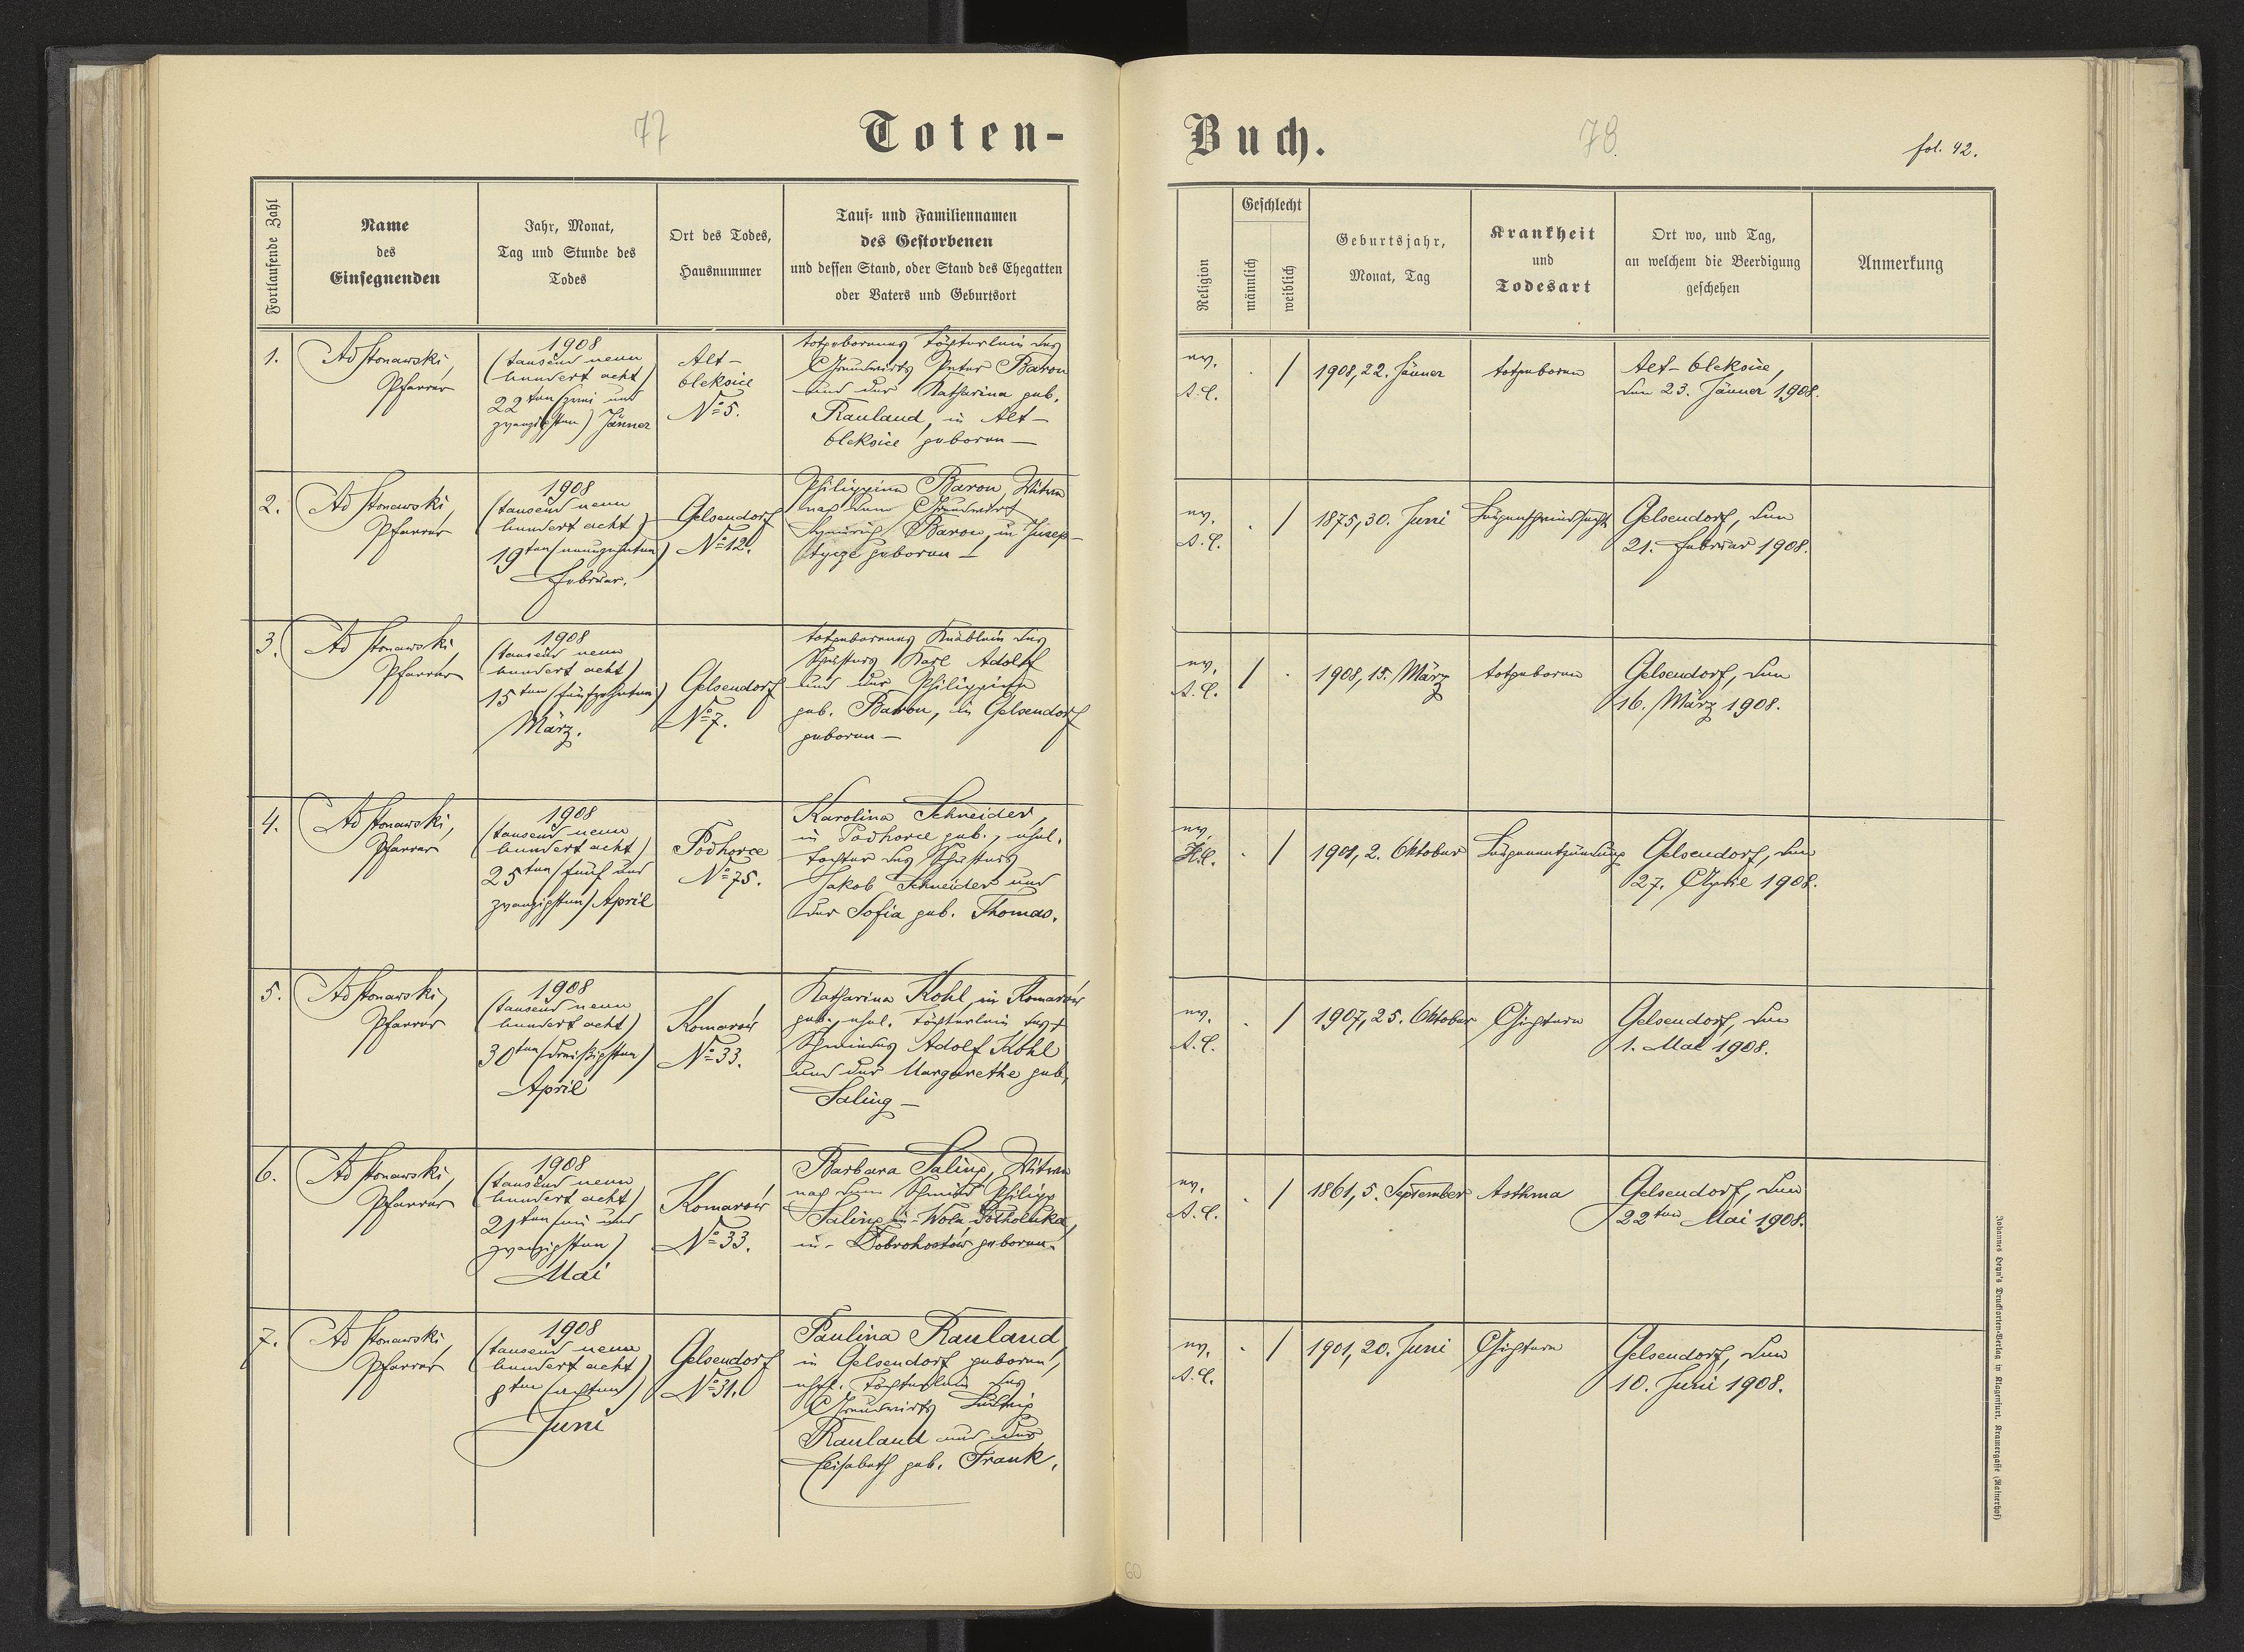 77
Toten-
Fortlaufende Zahl
Name
des
Einsegnenden
Jahr, Monat,
Tag und Stunde des
Todes
Ort des Todes,
Hausnummer
Tauf- und Familiennamen
des Gestorbenen
und dessen Stand, oder Stand des Ehegatten
oder Vaters und Geburtsort
1.
Ad Stonawski,
Pfarrer
1908
(tausend neun
hundert acht)
22ten (zwei und
zwanzigsten) Jänner
Alt-
Oleksice
No 5.
totgeborenes Töchterlein des
Grundwirts Peter Baron
und der Katharina geb.
Rauland, in Alt-
Oleksice geboren —
2.
Ad Stonawski,
Pfarrer
1908
(tausend neun
hundert acht)
19ten (neunzehnten)
Februar.
Gelsendorf
No 12.
Philippina Baron, Witwe
nach dem Grundwirt
Heinrich Baron, in Josep-
geboren —
3.
Ad Stonawski,
Pfarrer
1908
(tausend neun
hundert acht)
15ten (fünfzehnten)
März.
Gelsendorf
No 7.
totgeborenes Knäblein des
Schusters Karl Adolf
und der Philippina
geb. Baron, in Gelsendorf
geboren —
4.
Ad Stonawski,
Pfarrer
1908
(tausend neun
hundert acht)
25ten (fünf und
zwanzigsten) April
Podhorce
No 75.
Karolina Schneider,
in Podhorce geb., ehel.
Tochter des Schusters
Jakob Schneider und
der Sofia geb. Thomas.
5.
Ad Stonawski,
Pfarrer
1908
(tausend neun
hundert acht)
30ten (dreißigsten)
April
Komarów
No 33.
Katharina Kohl, in Komarów
geb., ehel. Töchterlein des
Schmiedes Adolf Kohl
und der Margarethe geb.
Saling —
6.
Ad Stonawski,
Pfarrer
1908
(tausend neun
hundert acht)
21ten (ein und
zwanzigsten)
Mai
Komarów
No 33.
Barbara Saling, Witwe
nach dem Schmied Philipp
Saling in Wola Dołholucka,
in Dobrohostów geboren.
7.
Ad Stonawski,
Pfarrer
1908
(tausend neun
hundert acht)
8ten (achten)
Juni
Gelsendorf
No 31.
Paulina Rauland,
in Gelsendorf geboren,
ehel. Töchterlein des
Grundwirts Ludwig
Rauland und der
Elisabeth geb. Frank.
Buch.
78
fol. 42.
Religion
Geschlecht
männlich
weiblich
Geburtsjahr,
Monat, Tag
Krankheit
und
Todesart
Ort wo, und Tag,
an welchem die Beerdigung
geschehen
Anmerkung
ev.
A.C.
. /
1908, 22. Jänner
totgeboren
Alt-Oleksice,
den 23. Jänner 1908.
ev.
A.C.
. /
1875, 30. Juni
Lungenschwindsucht
Gelsendorf, den
21. Februar 1908.
ev.
A.C.
/ .
1908, 15. März
totgeboren
Gelsendorf, den
16. März 1908.
ev.
H.C.
. /
1901, 2. Oktober
Lungenentzündung
Gelsendorf, den
27. April 1908.
ev.
A.C.
. /
1907, 25. Oktober
Gichtern
Gelsendorf, den
1. Mai 1908.
ev.
A.C.
. /
1861, 5. September
Asthma
Gelsendorf, den
22ten Mai 1908.
ev.
A.C.
. /
1901, 20. Juni
Gichtern
Gelsendorf, den
10. Juni 1908.
Johannes Heyn's Drucksorten-Verlag in Klagenfurt, Kramergasse (Rainerhof)
60